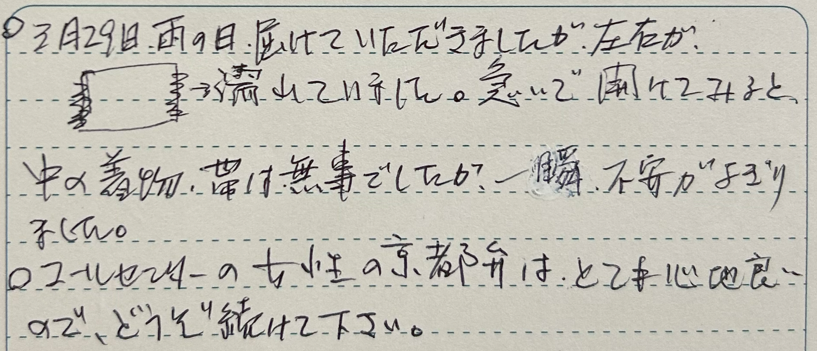 ○3月29日.雨の日.届けていただきましたが.左右が.
→濡れていました。急いで開けてみると、
中の着物、帯は無事でしたが、一瞬、不安がよぎり
ました。
○コールセンターの女性の京都弁は、とても心地良い
ので、どうぞ続けて下さい。